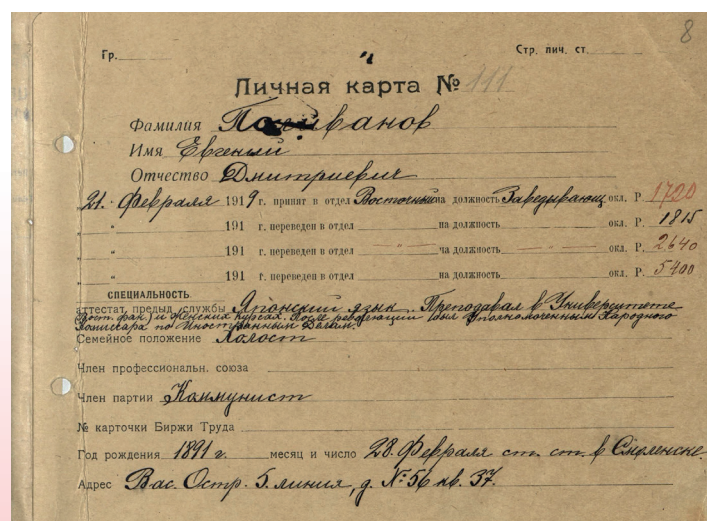 8
Гр.
Стр. лич. ст.
Личная карта № 111
Фамилия Поливанов
Имя Евгений
Отчество Дмитриевич
21. Февраля 1919 г. принят в отдел Восточный на должность Заведывающ. окл. Р. 1720
" " 191 г. переведен в отдел на должность окл. Р. 1815
" " 191 г. переведен в отдел " на должность " окл. Р. 2640
" " 191 г. переведен в отдел на должность окл. Р. 5400
СПЕЦИАЛЬНОСТЬ
аттестат предыд. службы Японский язык. Преподавал в Университете
(Вост. фак.) и женских курсах. После революции был Уполномоченным Народного
Комиссара по Иностранным Делам.
Семейное положение Холост
Член профессиональн. союза
Член партии Коммунист
№ карточки Биржи Труда
Год рождения 1891 г. месяц и число 28. Февраля ст. ст. в Смоленске.
Адрес Вас. Остр. 5. линия, д. № 56 кв. 37.